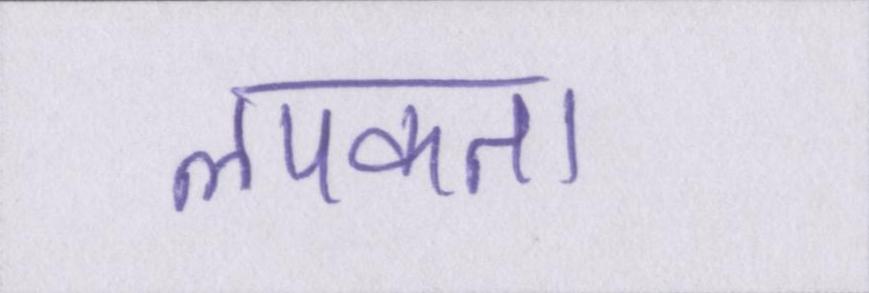 लपकता